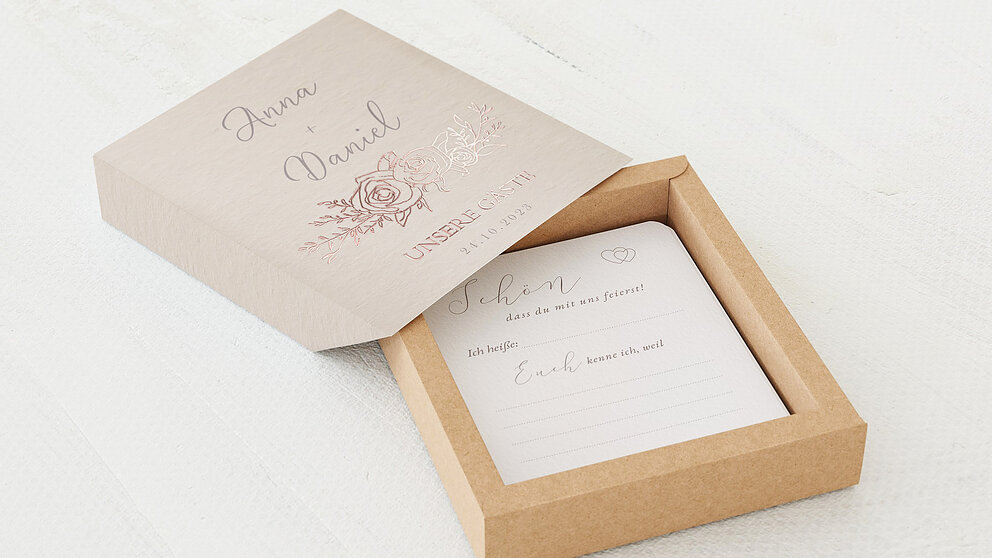 Anna
+
Daniel
UNSERE GÄSTE
24.10.2023
Schön
dass du mit uns feierst!
Ich heiße:
Euch kenne ich, weil